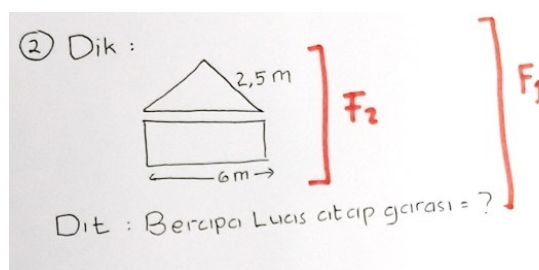 ② Dik :
2,5 m
F₂
F₁
6m
Dit : Berapa Luas atap garasi = ?